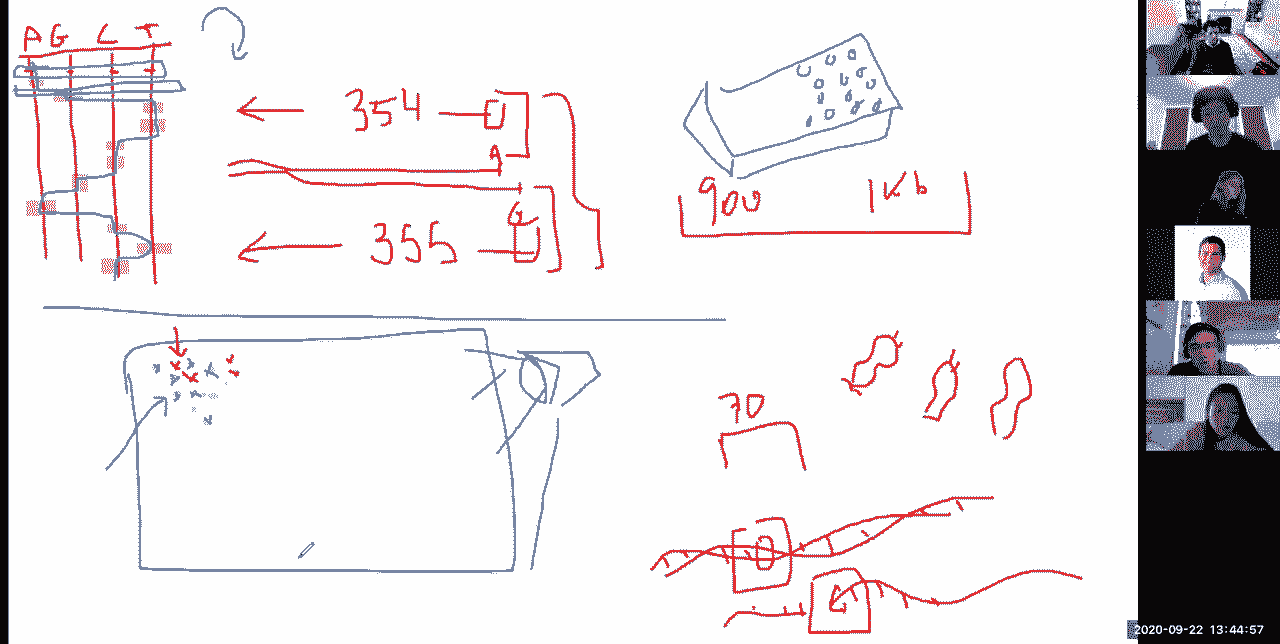 A G C T
354
A
G
355
900 1Kb
70
2020-09-22 13:44:57